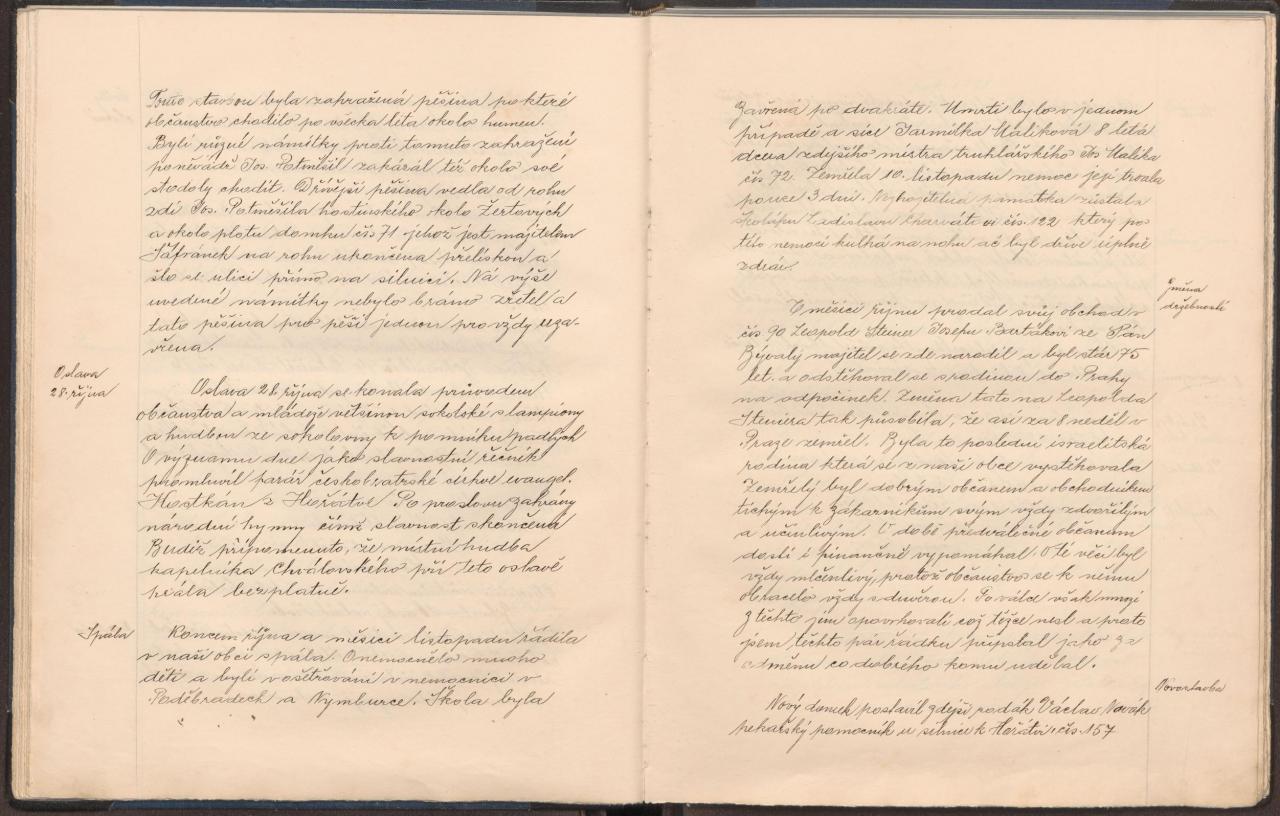 Touto stavbou byla zahražená pěšina po které
občanstvo chodilo po všecka léta okolo humen.
Byli různí námitky proti tomuto zahražení
poněvádž Jos. Potměšil zakázal též okolo své
stodoly chodit. Dřívější pěšina vedla od rohu
zdi Jos. Potměšila hostinského okolo Žertových
a okolo plotu domku čís 71 jehož jest majitelem
Šafránek na rohu ukončena přeliskou a
šlo se ulicí přímo na silnici. Na výše
uvedené námitky nebylo bráno zřetel a
tato pěšina pro pěší jednou pro vždy uza-
vřena.
Oslava
28. října
Oslava 28. října se konala průvodem
občanstva a mládeže většinou sokolské s lampiony
a hudbou ze sokolovny k pomníku padlých
O významu dne jako slavnostní řečník
promluvil farář českobratrské církve evangel.
Hostkán z Hořátve Po proslovu zahrány
národní hymny čímž slavnost skončena
Buděž připomenuto, že místní hudba
kapelníka Chválovského při této oslavě
hrála bezplatně.
Spála
Koncem října a měsíci listopadu řádila
v naší obci spála. Onemocnělo mnoho
dětí a byli v ošetřování v nemocnici v
Poděbradech a Nymburce. Škola byla
zavřená po dvakráte. Úmrtí bylo v jednom
případě a sice Jarmilka Malíková 8 letá
dcera zdejšího mistra truhlářského Jos Malíka
čís 72. Zemřela 10. listopadu nemoc její trvala
pouze 3 dni. Nehojitelná památka zůstala
školáku Ladislavu Charvátovi čís. 122 který po
této nemoci kulhá na nohu ač byl dříve úplně
zdráv.
změna
držebnosti
V měsíci říjnu prodal svůj obchod v
čís 90 Leopold Steiner Josefu Bartákovi ze Pán
Bývalý majitel se zde narodil a byl stár 75
let. a odstěhoval se s rodinou do Prahy
na odpočinek. Změna tato na Leopolda
Steinera tak působila, že asi za 8 neděl v
Praze zemřel. Byla to poslední israelitská
rodina která se z naší obce vystěhovala
Zemřelý byl dobrým občanem a obchodníkem
tichým k zákazníkům svým vždy zdvořilým
a učinlivým. V době předválečné občanům
dosti i finančně vypomáhal. O té věci byl
vždy mlčenlivý, protož občanstvo se k němu
obracelo vždy s důvěrou. Po válce však mnozí
z těchto jím opovrhovali což těžce nesl a proto
jsem těchto pár řádků připsal jako za
odměnu co dobrého komu udělal.
Novostavba
Nový domek postavil zdejší rodák Václav Novák
pekařský pomocník u silnice k Hořátvi čís. 157